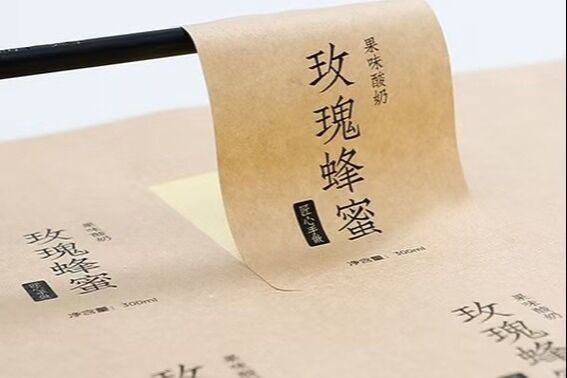 果味酸奶
玫瑰蜂蜜
匠心手做
净含量：300ml
果味酸奶
玫瑰蜂蜜
匠心手做
净含量：300ml
果味酸奶
玫瑰蜂
玫
果味